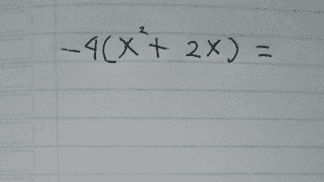 -4(x² + 2x) =